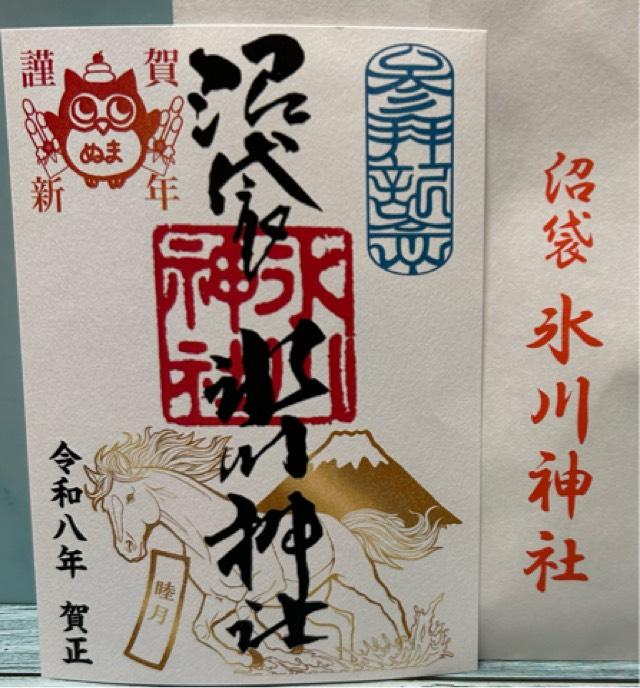 謹賀新年
ぬま
参拝記念
沼袋
氷川神社
氷川神社
令和八年 賀正
睦月
沼袋 氷川神社